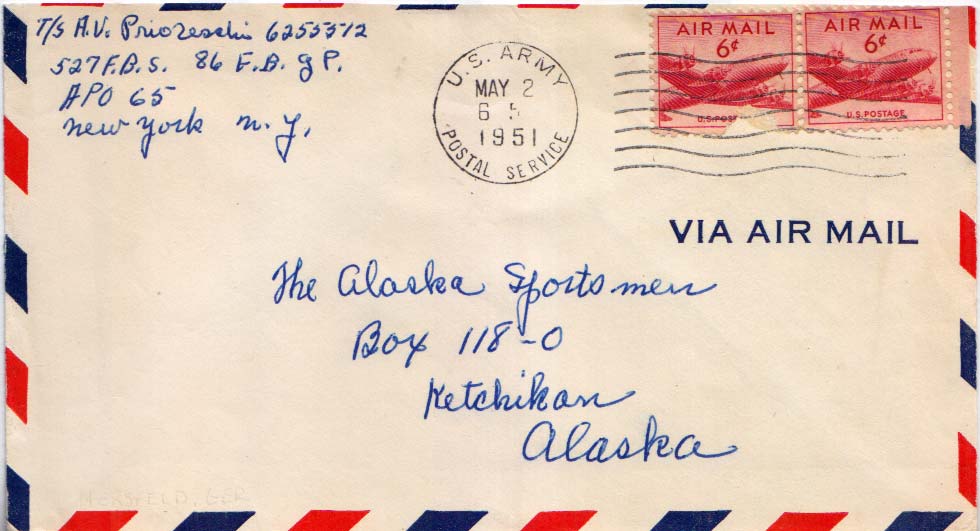 T/S A.V. Priozeschi 6255572
527 F.B.S. 86 F.B. gP.
APO 65
New York N.Y.
U.S. ARMY
MAY 2
6 5
1951
POSTAL SERVICE
AIR MAIL
6¢
U.S. POST
AIR MAIL
6¢
U.S. POSTAGE
VIA AIR MAIL
The Alaska Sportsmen
Box 118-0
Ketchikan
Alaska
HERSFELD, GER